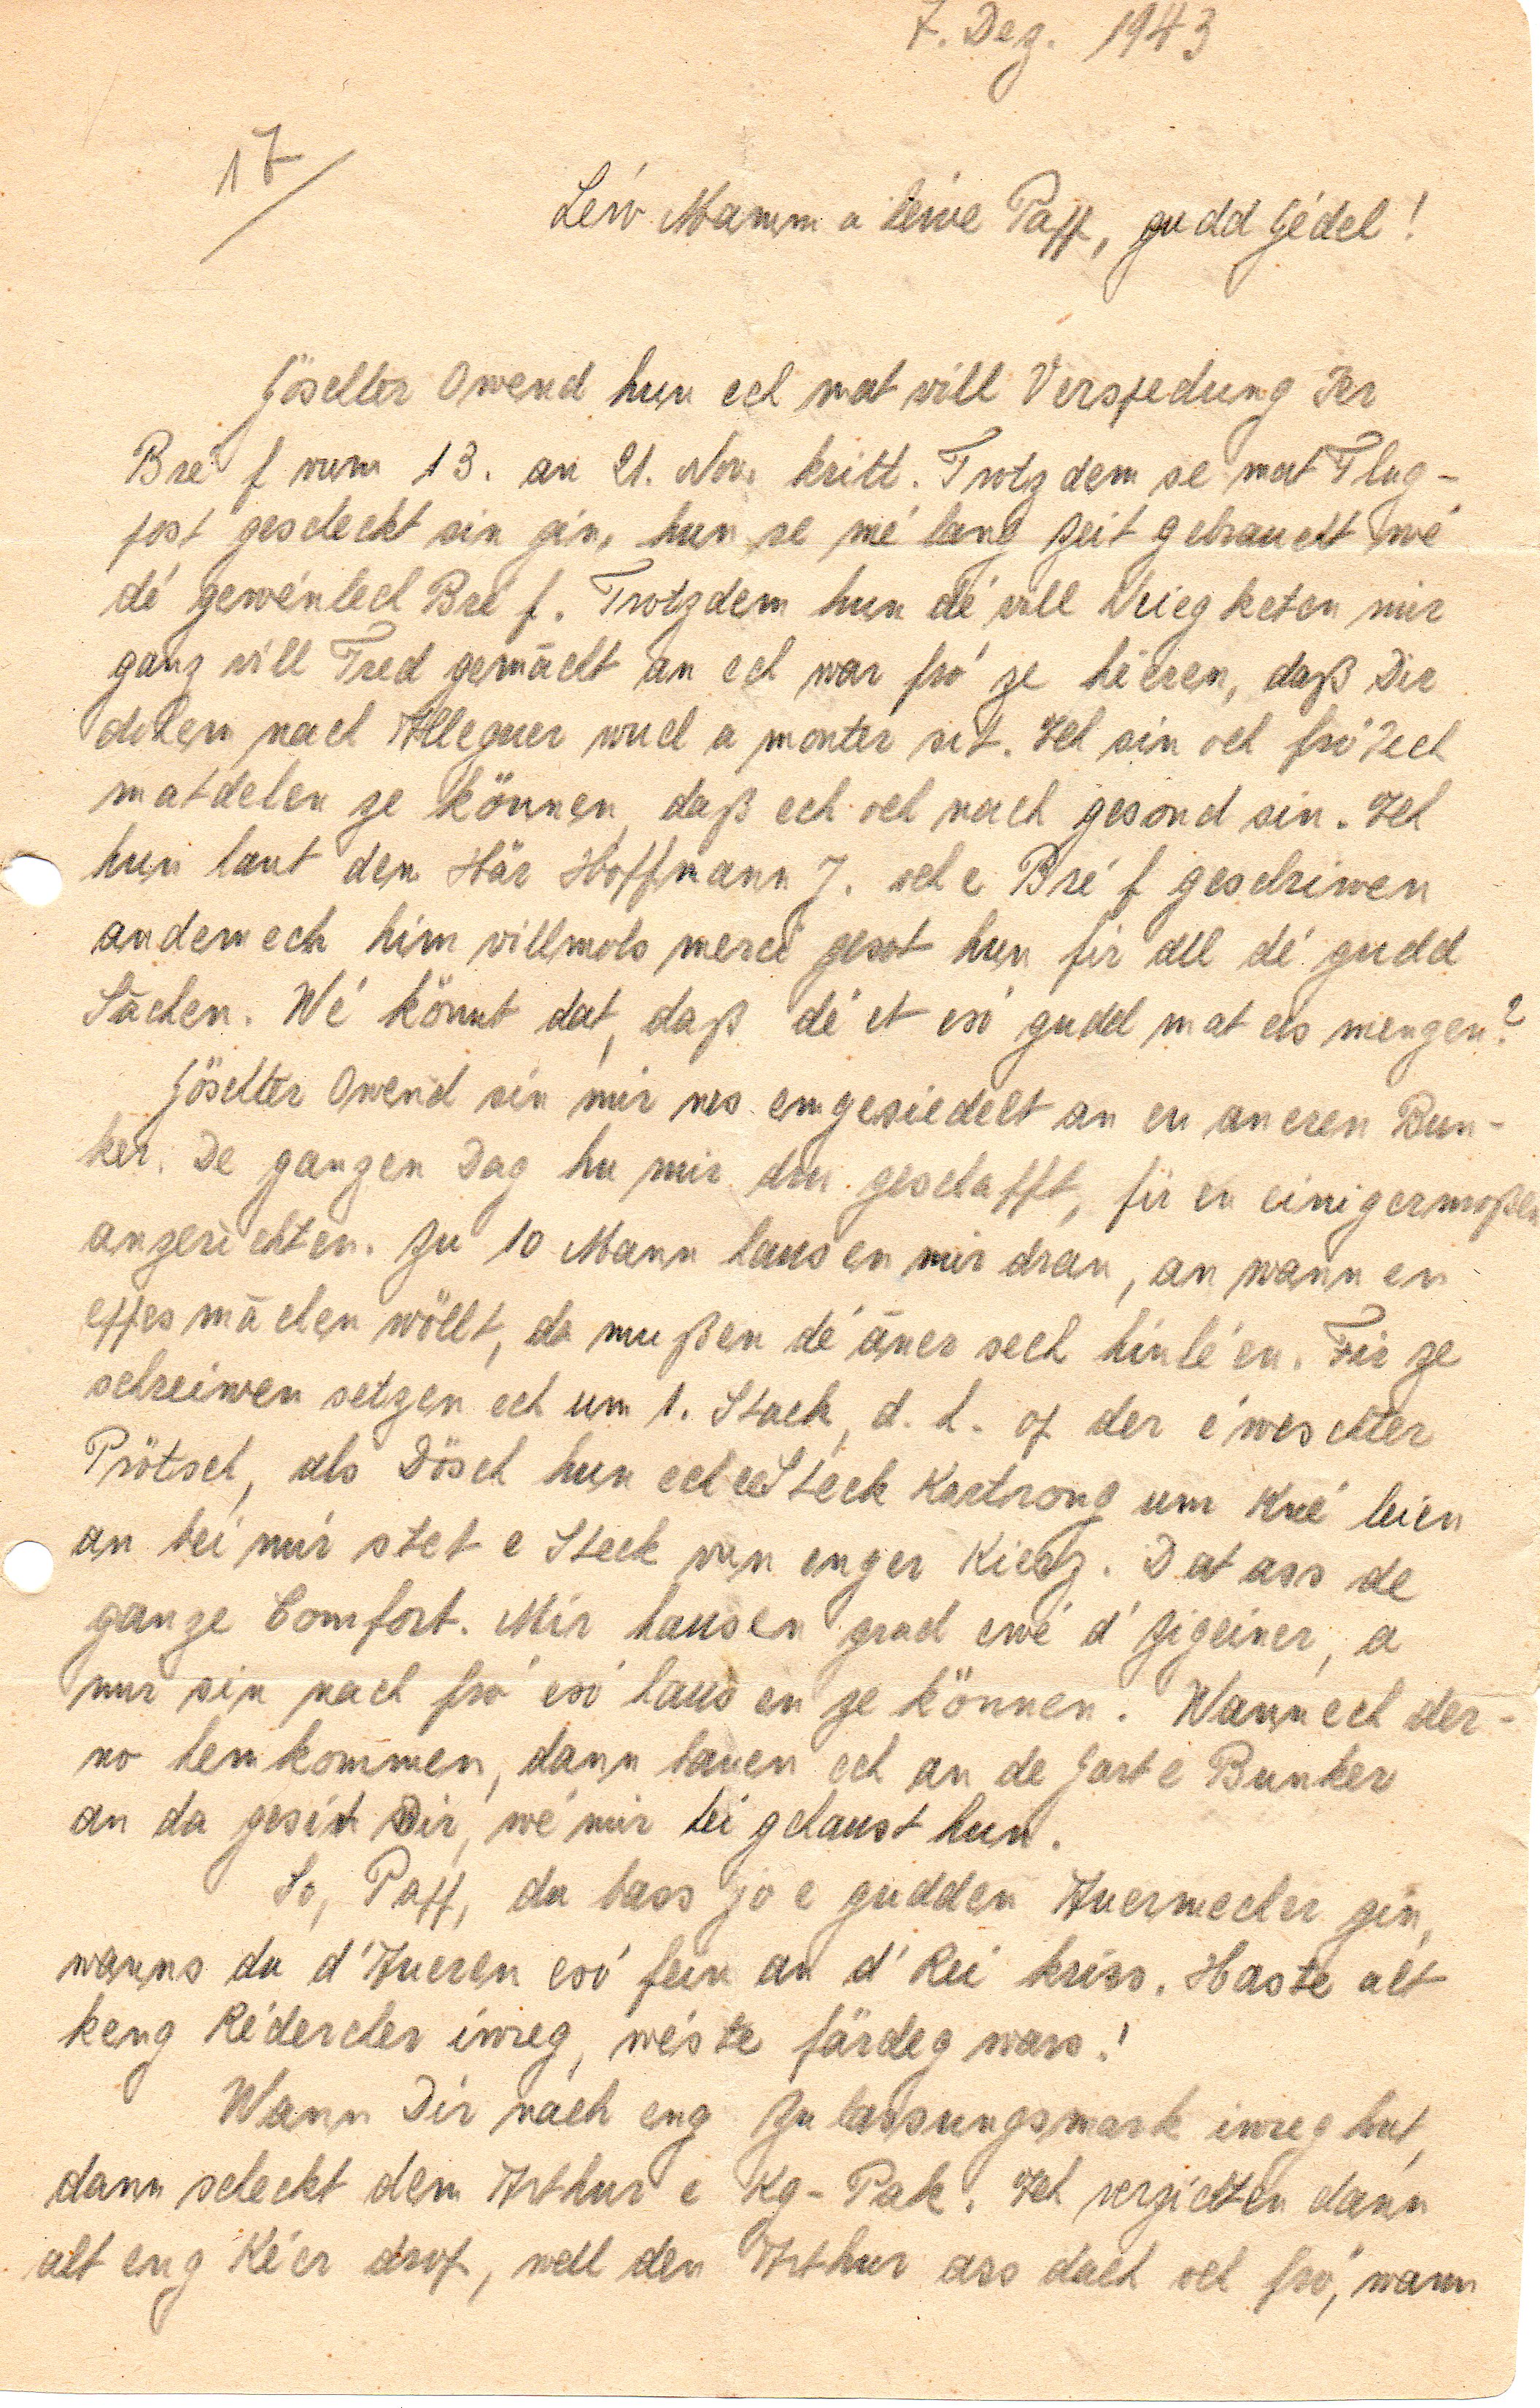 7. Dez. 1943
17/
Léiw Mamm a léiwe Papp, gudd Gédel!
Göschter Owend hun ech mat vill Verspedung Ier
Bré f vum 13. an 21. Nov. kritt. Trotzdem se mat Flug-
post gescheckt sin gin, hun se mé lang Zeit gebraucht wé
dé gewénlech Bré f. Trotzdem hun dé vill Neiegketen mir
ganz vill Fred gemächt an ech war fró ze héieren, daß Dir
dohem nach Alleguer wuel a monter sit. Ech sin och fró Iech
matdelen ze können, daß ech och nach gesond sin. Ech
hun laut dem Här Hoffmann J. och e Bré f geschriwen
andem ech him villmols merci gesot hun fir all dé gudd
Sächen. Wé könnt dat, daß dé et esó gudd mat eis mengen?
Göschter Owend sin mir nes emgesiedelt an en aneren Bun-
ker. De ganzen Dag hu mir dru geschafft, fir en einigermoßen
anzerichten. Zu 10 Mann hausen mir dran, an wann en
eppes mächen wöllt, da mußen dé äner sech hinléen. Fir ze
schreiwen setzen ech um 1. Stack, d. h. op der éweschter
Prötsch, als Dösch hun ech e Steck Kartrong um Kné leien
an bei mir stet e Steck van enger Kierz. Dat ass de
ganze Comfort. Mir hausen grad ewé d' Zigeiner, a
mir sin nach fró esó hausen ze können. Wann ech der-
no hem kommen, dann bauen ech an de Gart e Bunker
an da gesit Dir, wé mir hei gehaust hun.
So, Papp, du bass jo e gudden Auermecher gin,
wanns du d'Aueren esó fein an d' Rei kriss. Haste alt
keng Rédercher iwreg, wéste färdeg wars!
Wann Dir nach eng Zulassungsmark iwreg hut,
dann scheckt dem Arthur e Kg-Pak. Ech verzichten dann
alt eng Kéier drop, well den Arthur ass dach och fró, wann